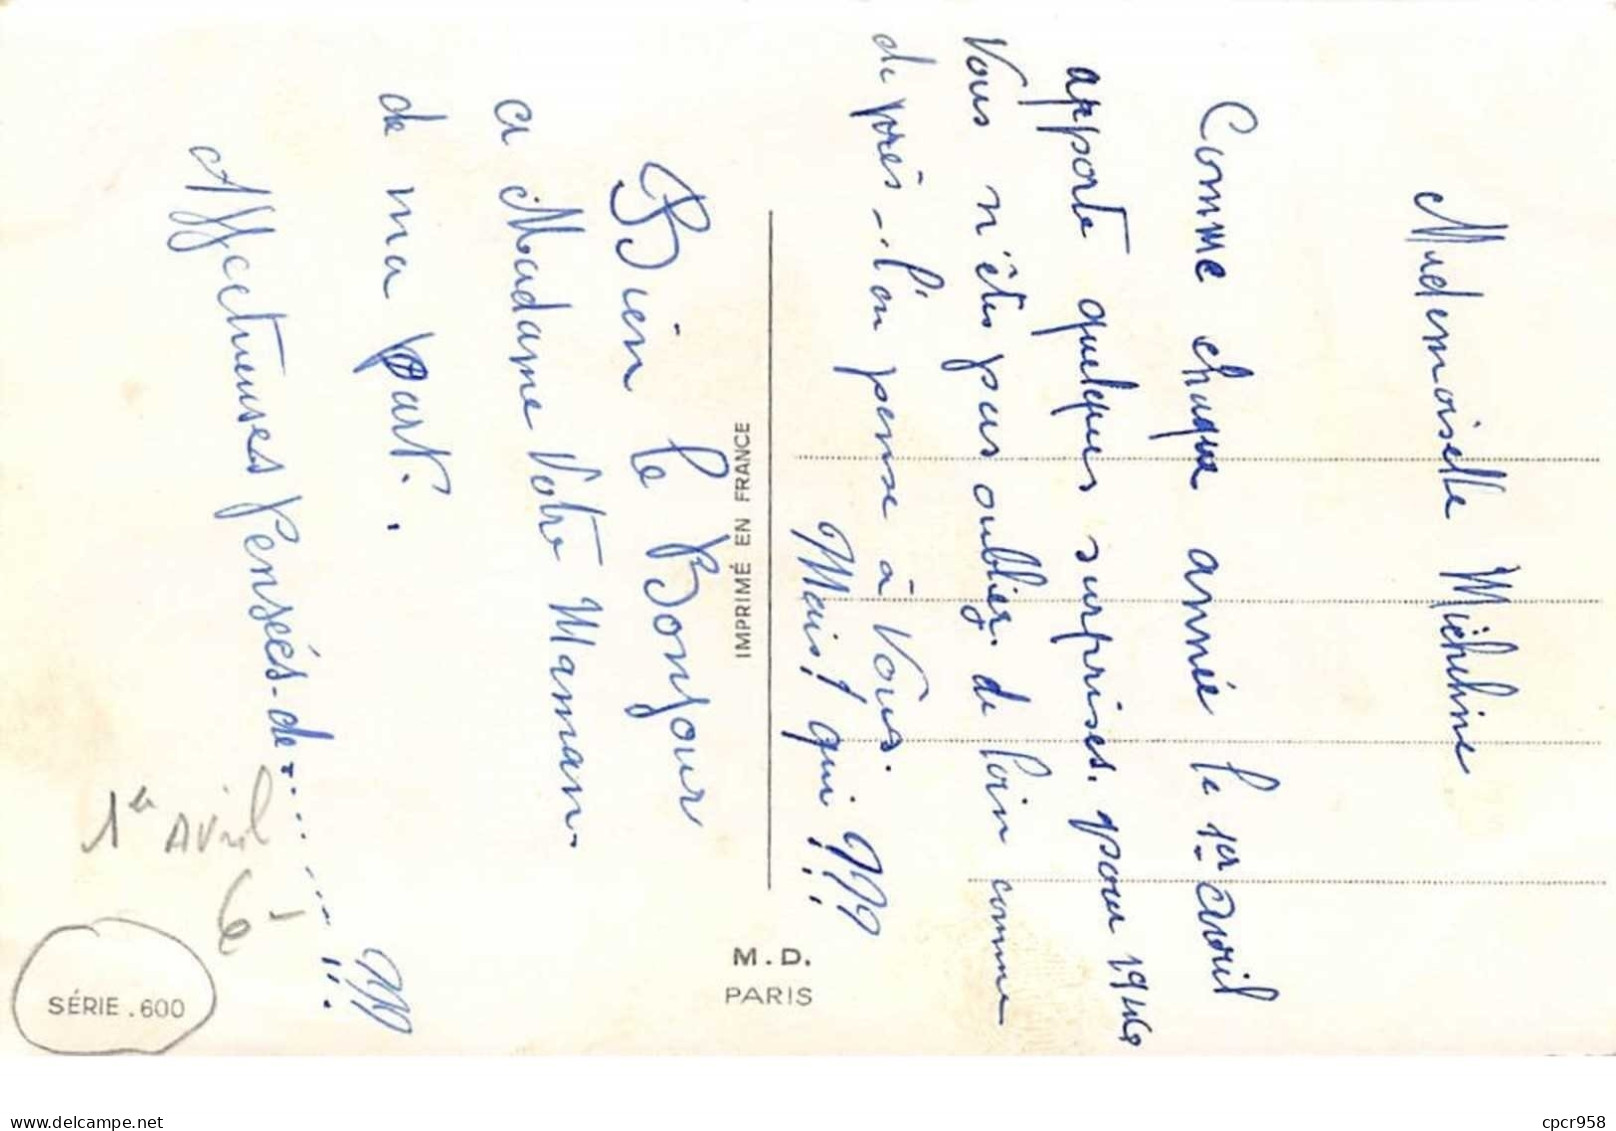 Mademoiselle Micheline
Comme chaque année le 1er avril
apporte quelques surprises. pour 1946
Vous n'êtes pas oubliez. de loin comme
de près - l'on pense à Vous.
Mais! qui!!! M
Bien le Bonjour
a Madame Votre Maman.
de ma part.
Affectueuses Pensées. de.........!!! M
IMPRIMÉ EN FRANCE
M.D.
PARIS
1er Avril
6-
SÉRIE.600
cpcr958